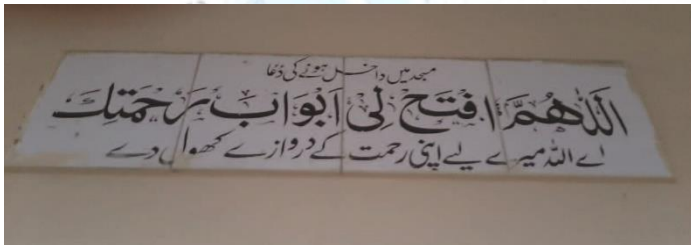 مسجد میں داخل ہونے کی دُعا
اَللّٰهُمَّ افْتَحْ لِىْ اَبْوَابَ رَحْمَتِكَ
اے اللہ میرے لیے اپنی رحمت کے دروازے کھول دے